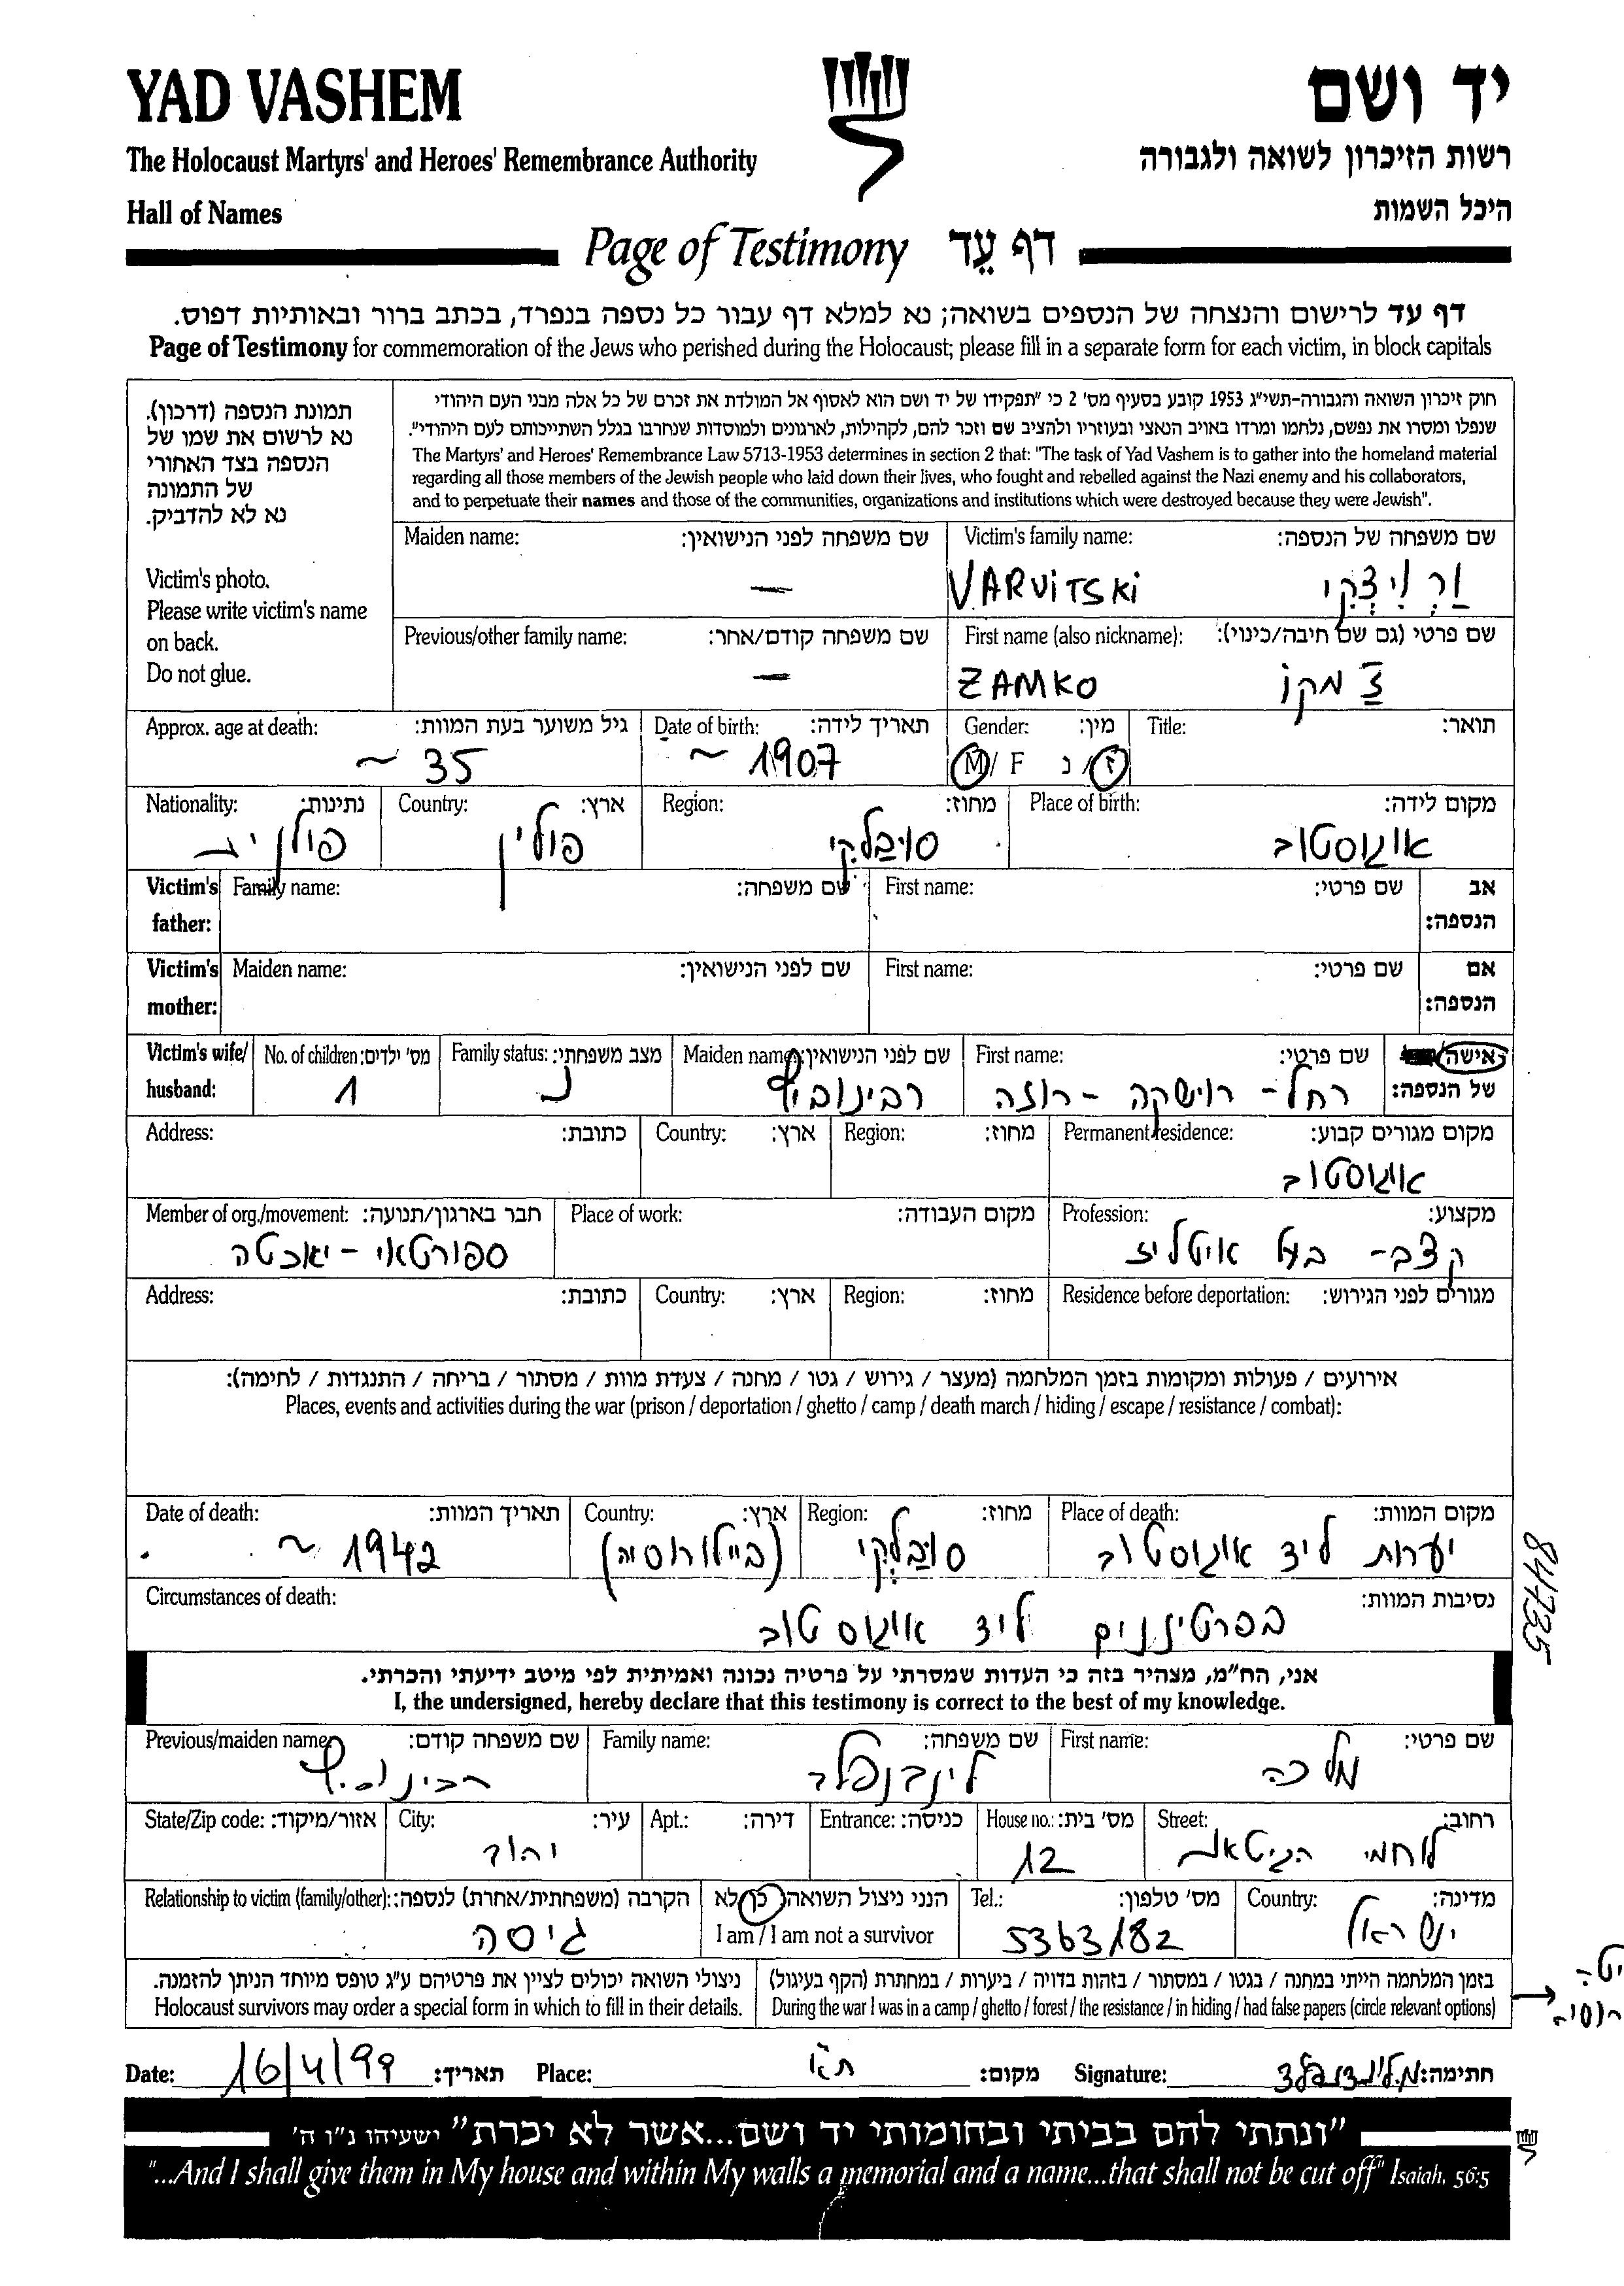 YAD VASHEM
יד ושם
The Holocaust Martyrs' and Heroes' Remembrance Authority
רשות הזיכרון לשואה ולגבורה
Hall of Names
היכל השמות
Page of Testimony דף עֵד
דף עד לרישום והנצחה של הנספים בשואה; נא למלא דף עבור כל נספה בנפרד, בכתב ברור ובאותיות דפוס.
Page of Testimony for commemoration of the Jews who perished during the Holocaust; please fill in a separate form for each victim, in block capitals
חוק זיכרון השואה והגבורה-תשי״ג 1953 קובע בסעיף מס׳ 2 כי ״תפקידו של יד ושם הוא לאסוף אל המולדת את זכרם של כל אלה מבני העם היהודי
שנפלו ומסרו את נפשם, נלחמו ומרדו באויב הנאצי ובעוזריו ולהציב שם וזכר להם, לקהילות, לארגונים ולמוסדות שנחרבו בגלל השתייכותם לעם היהודי״.
The Martyrs' and Heroes' Remembrance Law 5713-1953 determines in section 2 that: "The task of Yad Vashem is to gather into the homeland material
regarding all those members of the Jewish people who laid down their lives, who fought and rebelled against the Nazi enemy and his collaborators,
and to perpetuate their names and those of the communities, organizations and institutions which were destroyed because they were Jewish".
תמונת הנספה (דרכון).
נא לרשום את שמו של
הנספה בצד האחורי
של התמונה
נא לא להדביק.
Victim's photo.
Please write victim's name
on back.
Do not glue.
Victim's family name: שם משפחה של הנספה:
VARVITSKI וַרְוִיצְקִי
Maiden name: שם משפחה לפני הנישואין:
—
First name (also nickname): שם פרטי (גם שם חיבה/כינוי):
ZAMKO זַמקוֹ
Previous/other family name: שם משפחה קודם/אחר:
—
Title: תואר:
Gender: מין:
M/ F ז/ נ
Date of birth: תאריך לידה:
~ 1907
Approx. age at death: גיל משוער בעת המוות:
~ 35
Place of birth: מקום לידה:
אוגוסטוב
Region: מחוז:
סובַלקִי
Country: ארץ:
פולין
Nationality: נתינות:
פולניה
Victim's father: אב הנספה:
First name: שם פרטי:
Family name: שם משפחה:
Victim's mother: אם הנספה:
First name: שם פרטי:
Maiden name: שם לפני הנישואין:
Victim's wife/ husband: אישה של הנספה:
First name: שם פרטי:
רחל- רוישקה - רוזה
Maiden name: שם לפני הנישואין:
רבינוביץ
Family status: מצב משפחתי:
נ
No. of children: מס׳ ילדים:
1
Permanent residence: מקום מגורים קבוע:
אוגוסטוב
Region: מחוז:
Country: ארץ:
Address: כתובת:
Profession: מקצוע:
קצב- בעל איטליז
Place of work: מקום העבודה:
Member of org./movement: חבר בארגון/תנועה:
ספורטאי - יאכטה
Residence before deportation: מגורים לפני הגירוש:
Region: מחוז:
Country: ארץ:
Address: כתובת:
אירועים / פעולות ומקומות בזמן המלחמה (מעצר / גירוש / גטו / מחנה / צעדת מוות / מסתור / בריחה / התנגדות / לחימה):
Places, events and activities during the war (prison / deportation / ghetto / camp / death march / hiding / escape / resistance / combat):
Place of death: מקום המוות:
יערות ליד אוגוסטוב
Region: מחוז:
סובַלקִי
Country: ארץ:
(ביילורוסיה)
Date of death: תאריך המוות:
~ 1942
Circumstances of death: נסיבות המוות:
בפרטיזנים ליד אוגוסטוב
84735
אני, הח״מ, מצהיר בזה כי העדות שמסרתי על פרטיה נכונה ואמיתית לפי מיטב ידיעתי והכרתי.
I, the undersigned, hereby declare that this testimony is correct to the best of my knowledge.
First name: שם פרטי:
מלכה
Family name: שם משפחה:
לינדנפלד
Previous/maiden name: שם משפחה קודם:
רבינוביץ
Street: רחוב:
לוחמי הגיטאות
House no.: מס׳ בית:
12
Entrance: כניסה:
Apt.: דירה:
City: עיר:
יהוד
State/Zip code: אזור/מיקוד:
Country: מדינה:
ישראל
Tel.: מס׳ טלפון:
5363182
הנני ניצול השואה: כן לא
I am / I am not a survivor
Relationship to victim (family/other): הקרבה (משפחתית/אחרת) לנספה:
גיסה
בזמן המלחמה הייתי במחנה / בגטו / במסתור / בזהות בדויה / ביערות / במחתרת (הקף בעיגול)
During the war I was in a camp / ghetto / forest / the resistance / in hiding / had false papers (circle relevant options)
רוסיה
ניצולי השואה יכולים לציין את פרטיהם ע״ג טופס מיוחד הניתן להזמנה.
Holocaust survivors may order a special form in which to fill in their details.
Date: 16/4/99 תאריך: Place: ת״א מקום: Signature: מ.לינדנפלד חתימה:
״ונתתי להם בביתי ובחומותי יד ושם...אשר לא יכרת״ ישעיהו נ״ו ה׳
"...And I shall give them in My house and within My walls a memorial and a name...that shall not be cut off" Isaiah, 56:5